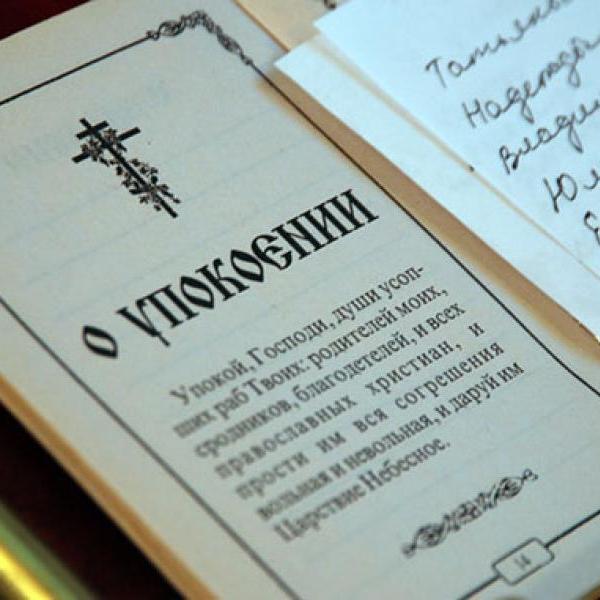 О УПОКОЄНИИ
Упокой, Господи, души усоп-
ших раб Твоих: родителей моих,
сродников, благодетелей, и всех
православных христиан, и
прости им вся согрешения
вольная и невольная, и даруй им
Царствие Небесное.
14
Надежды